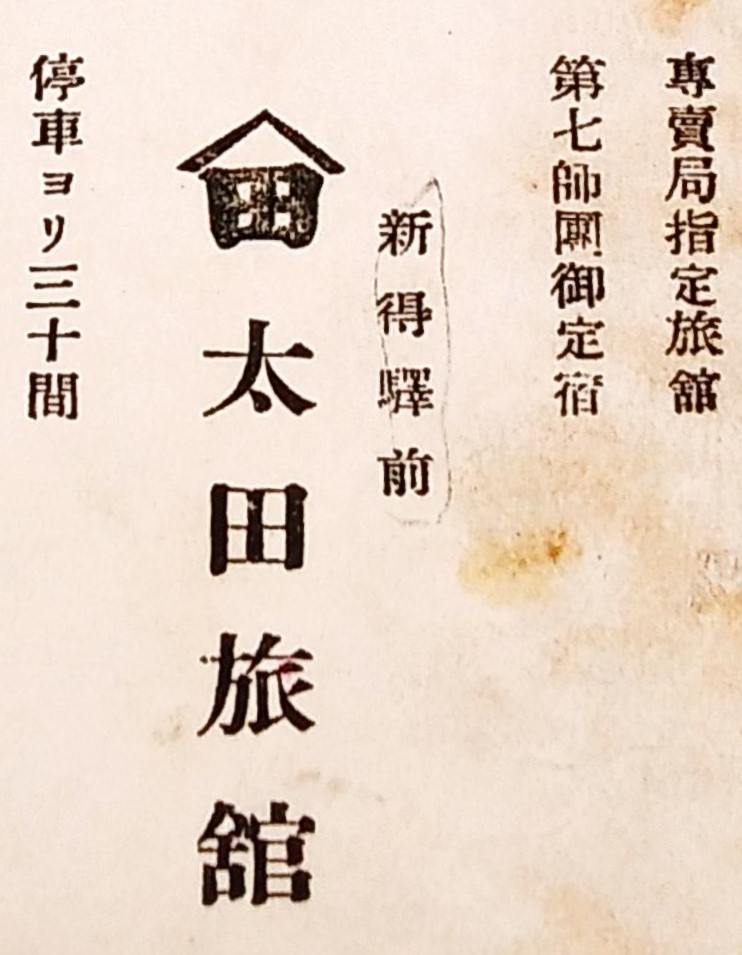 專賣局指定旅舘
第七師團御定宿
新得驛前
田
太田旅舘
停車ヨリ三十間